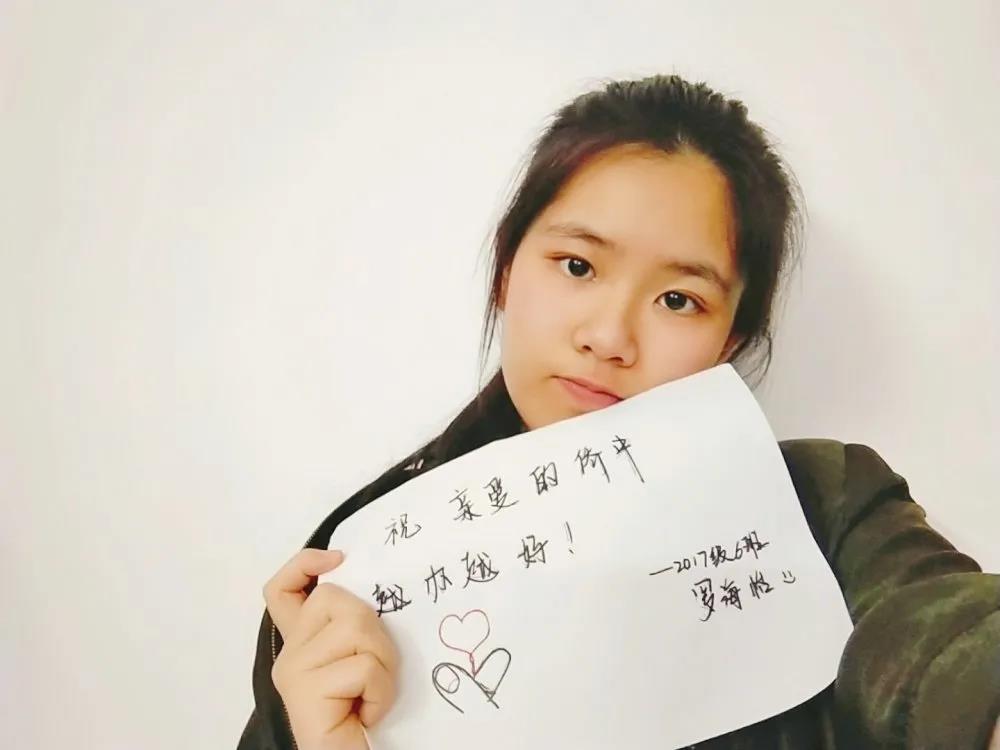 祝 亲爱的侨中
越办越好！
—2017级6班
罗海怡